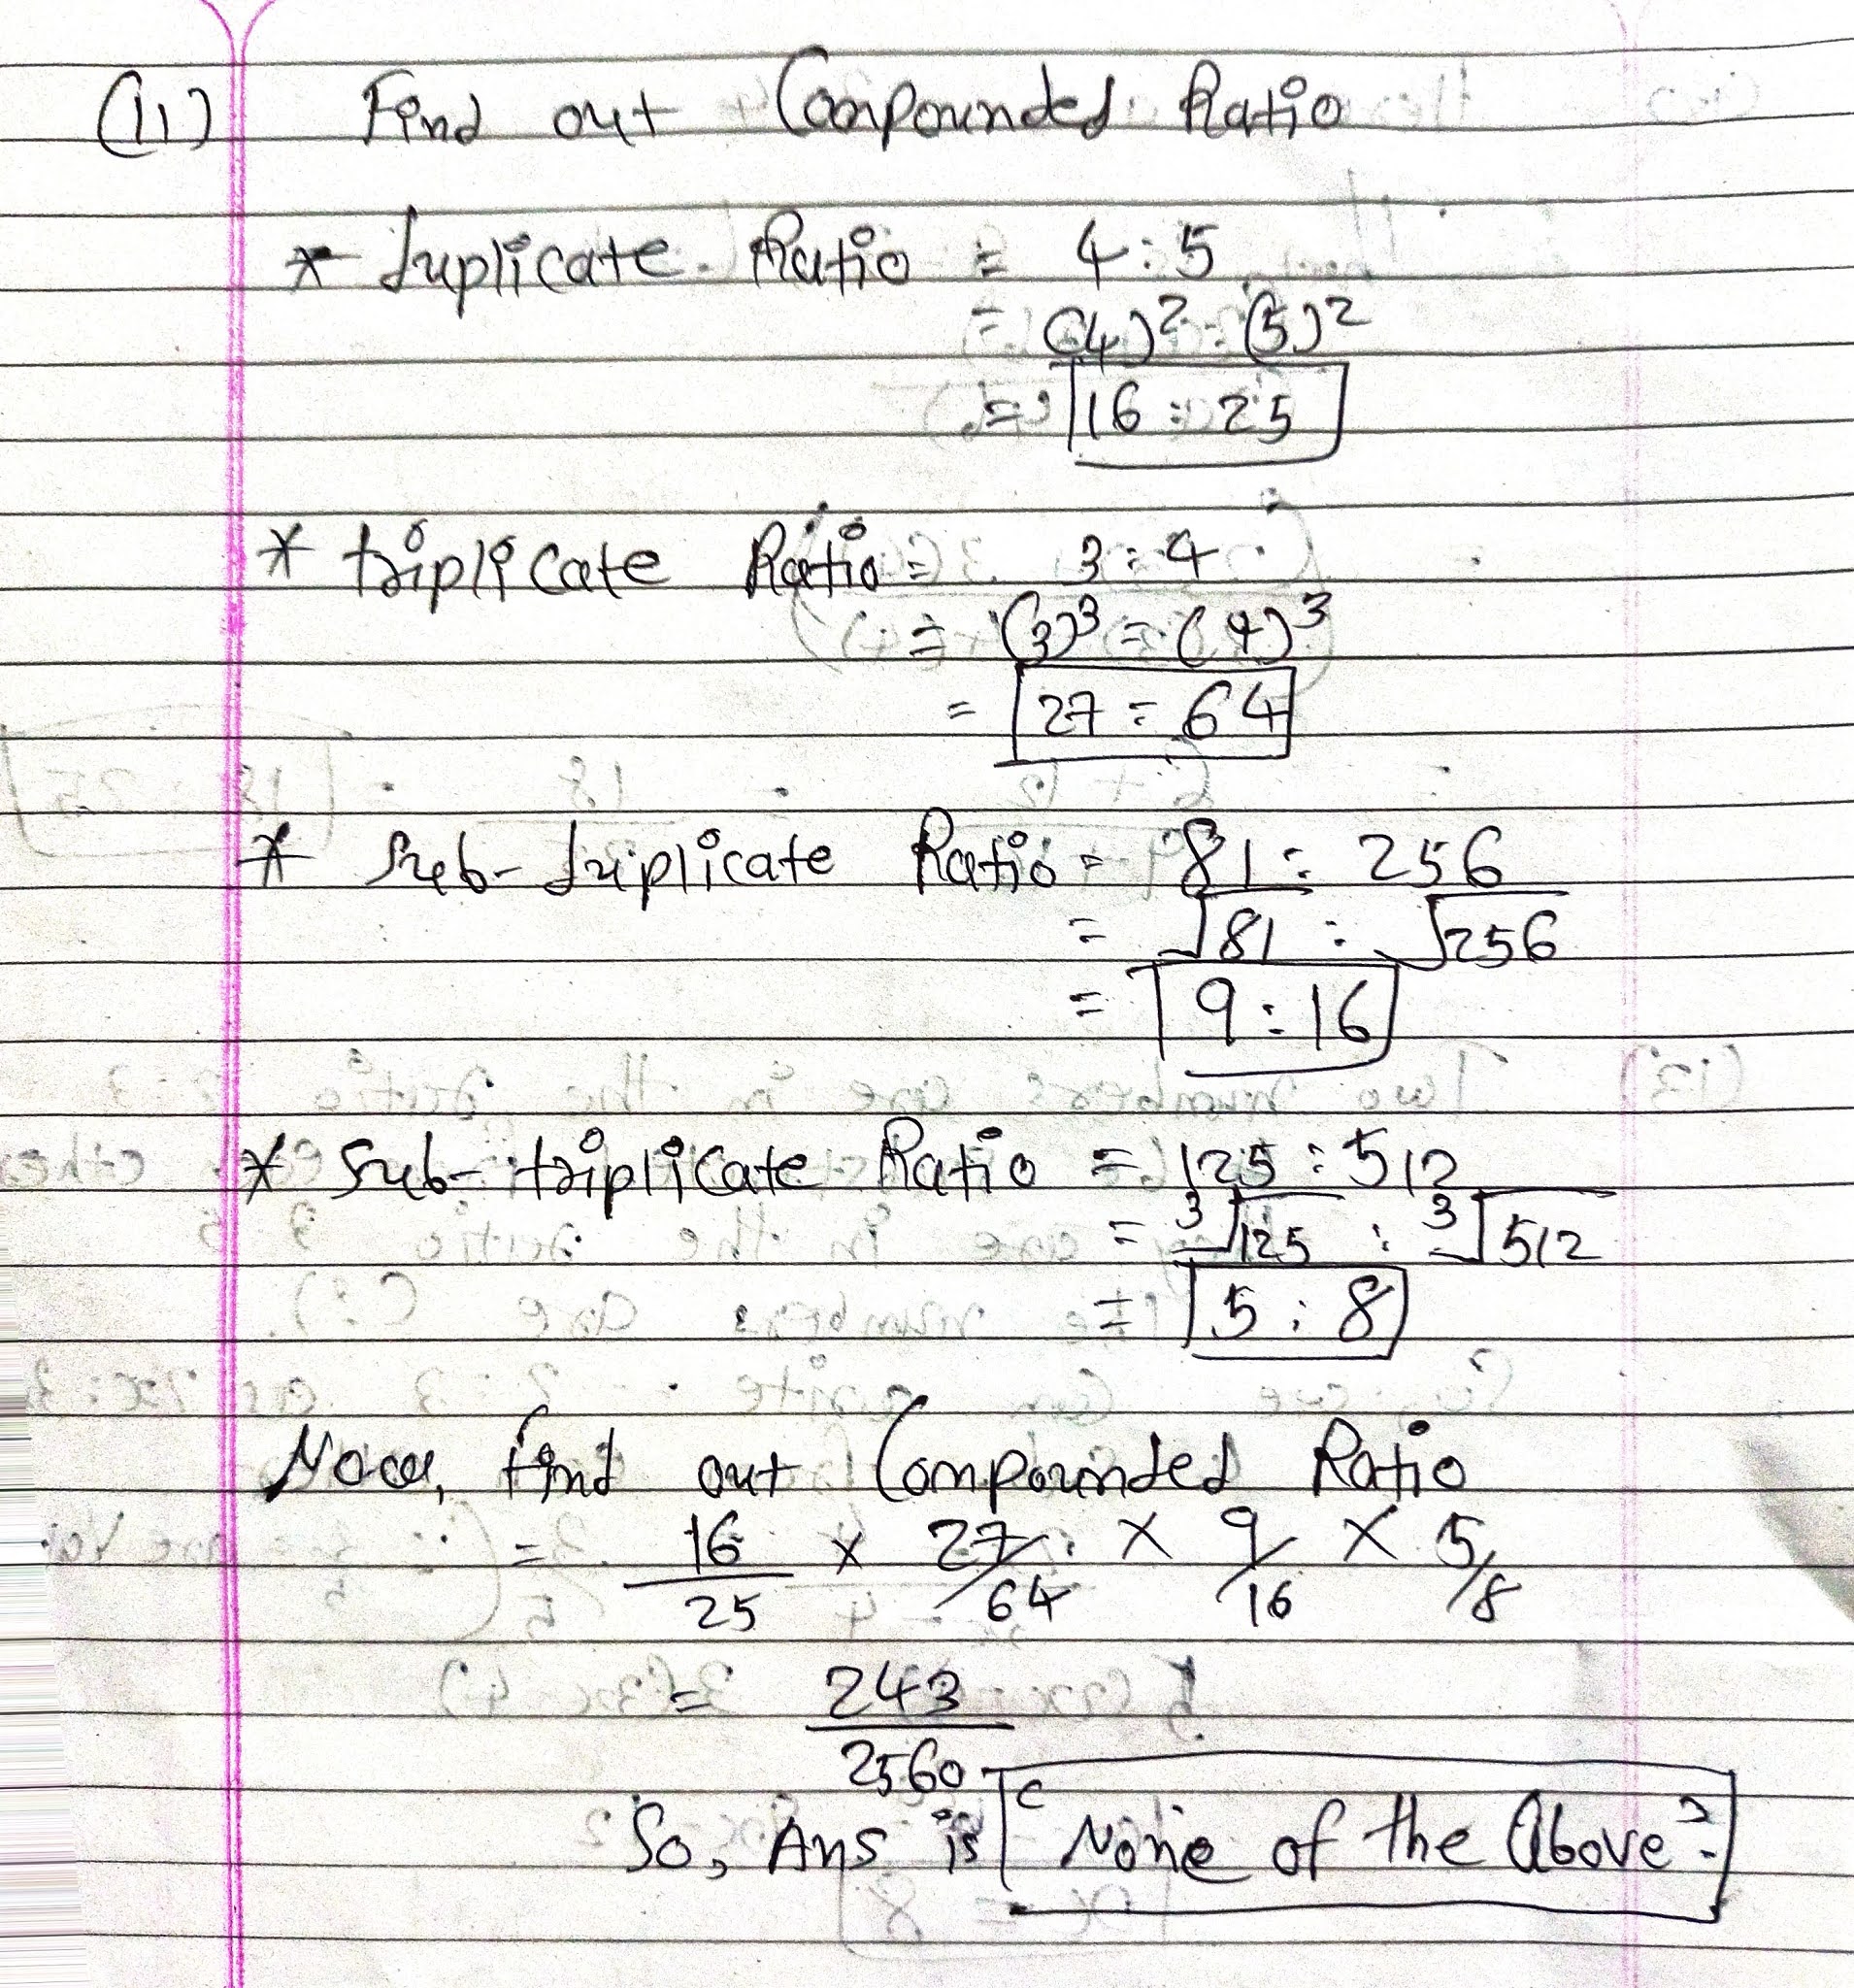 (11) Find out Compounded Ratio
* duplicate Ratio = 4:5
= (4)² : (5)²
= 16 : 25
* triplicate Ratio = 3:4
= (3)³ = (4)³
= 27 : 64
* Sub-duplicate Ratio = 81 : 256
= √81 : √256
= 9:16
* Sub-triplicate Ratio = 125 : 512
= ³√125 : ³√512
= 5 : 8
Now, find out Compounded Ratio
= 16/25 × 27/64 × 9/16 × 5/8
= 243/2560
So, Ans is "None of the Above".